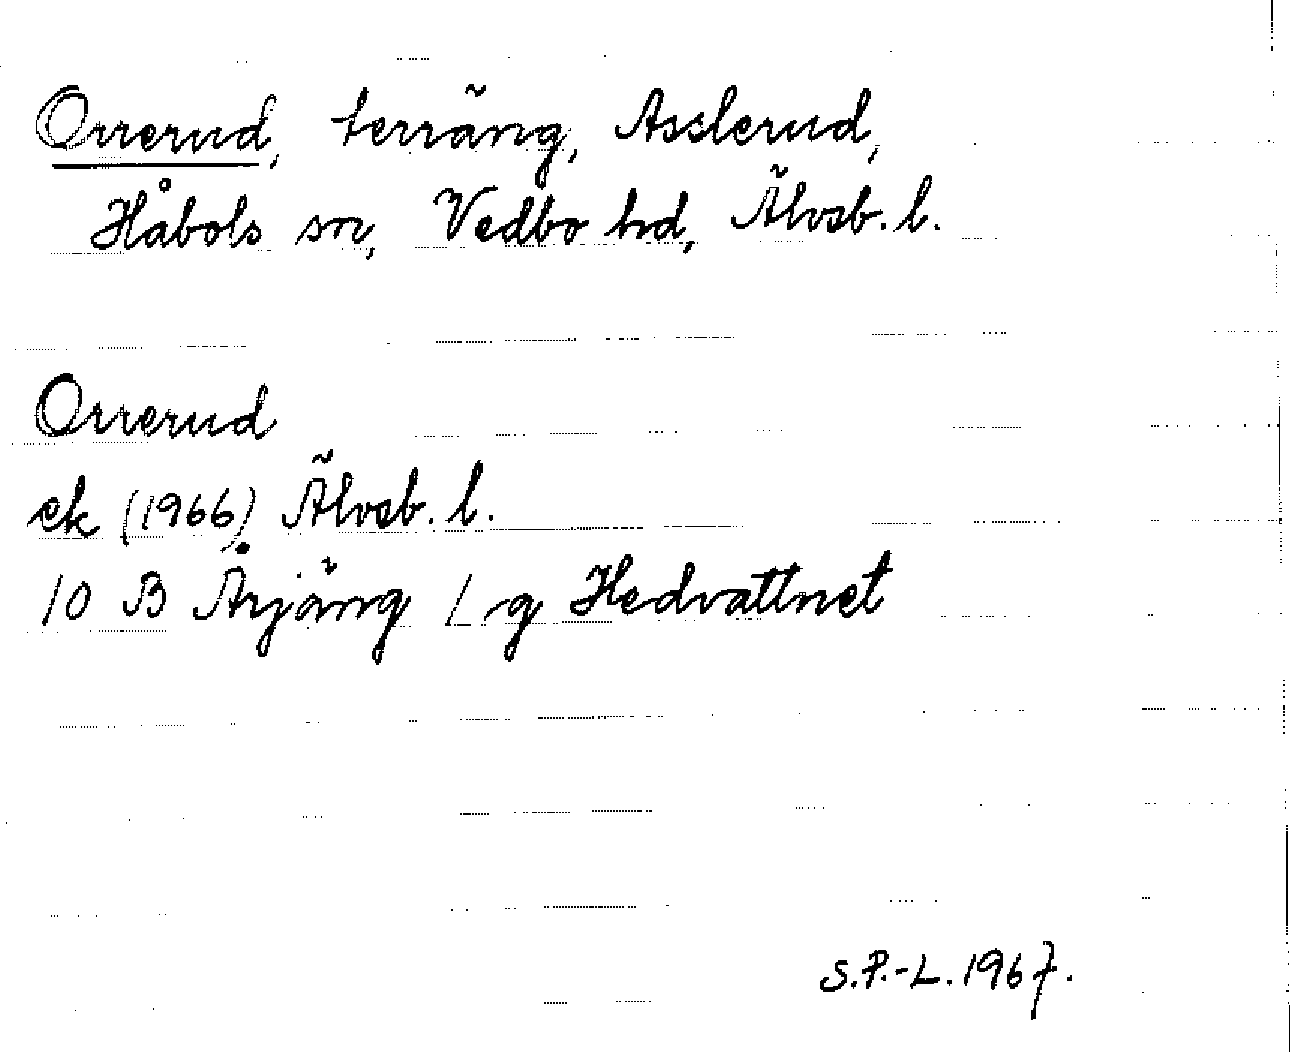 Orrerud, terräng, Asslerud,
Håbols sn, Vedbo hd, Älvsb. l.
Orrerud
ek (1966) Älvsb. l.
10 B Årjäng / rg Hedvattnet
S.P.-L. 1967.